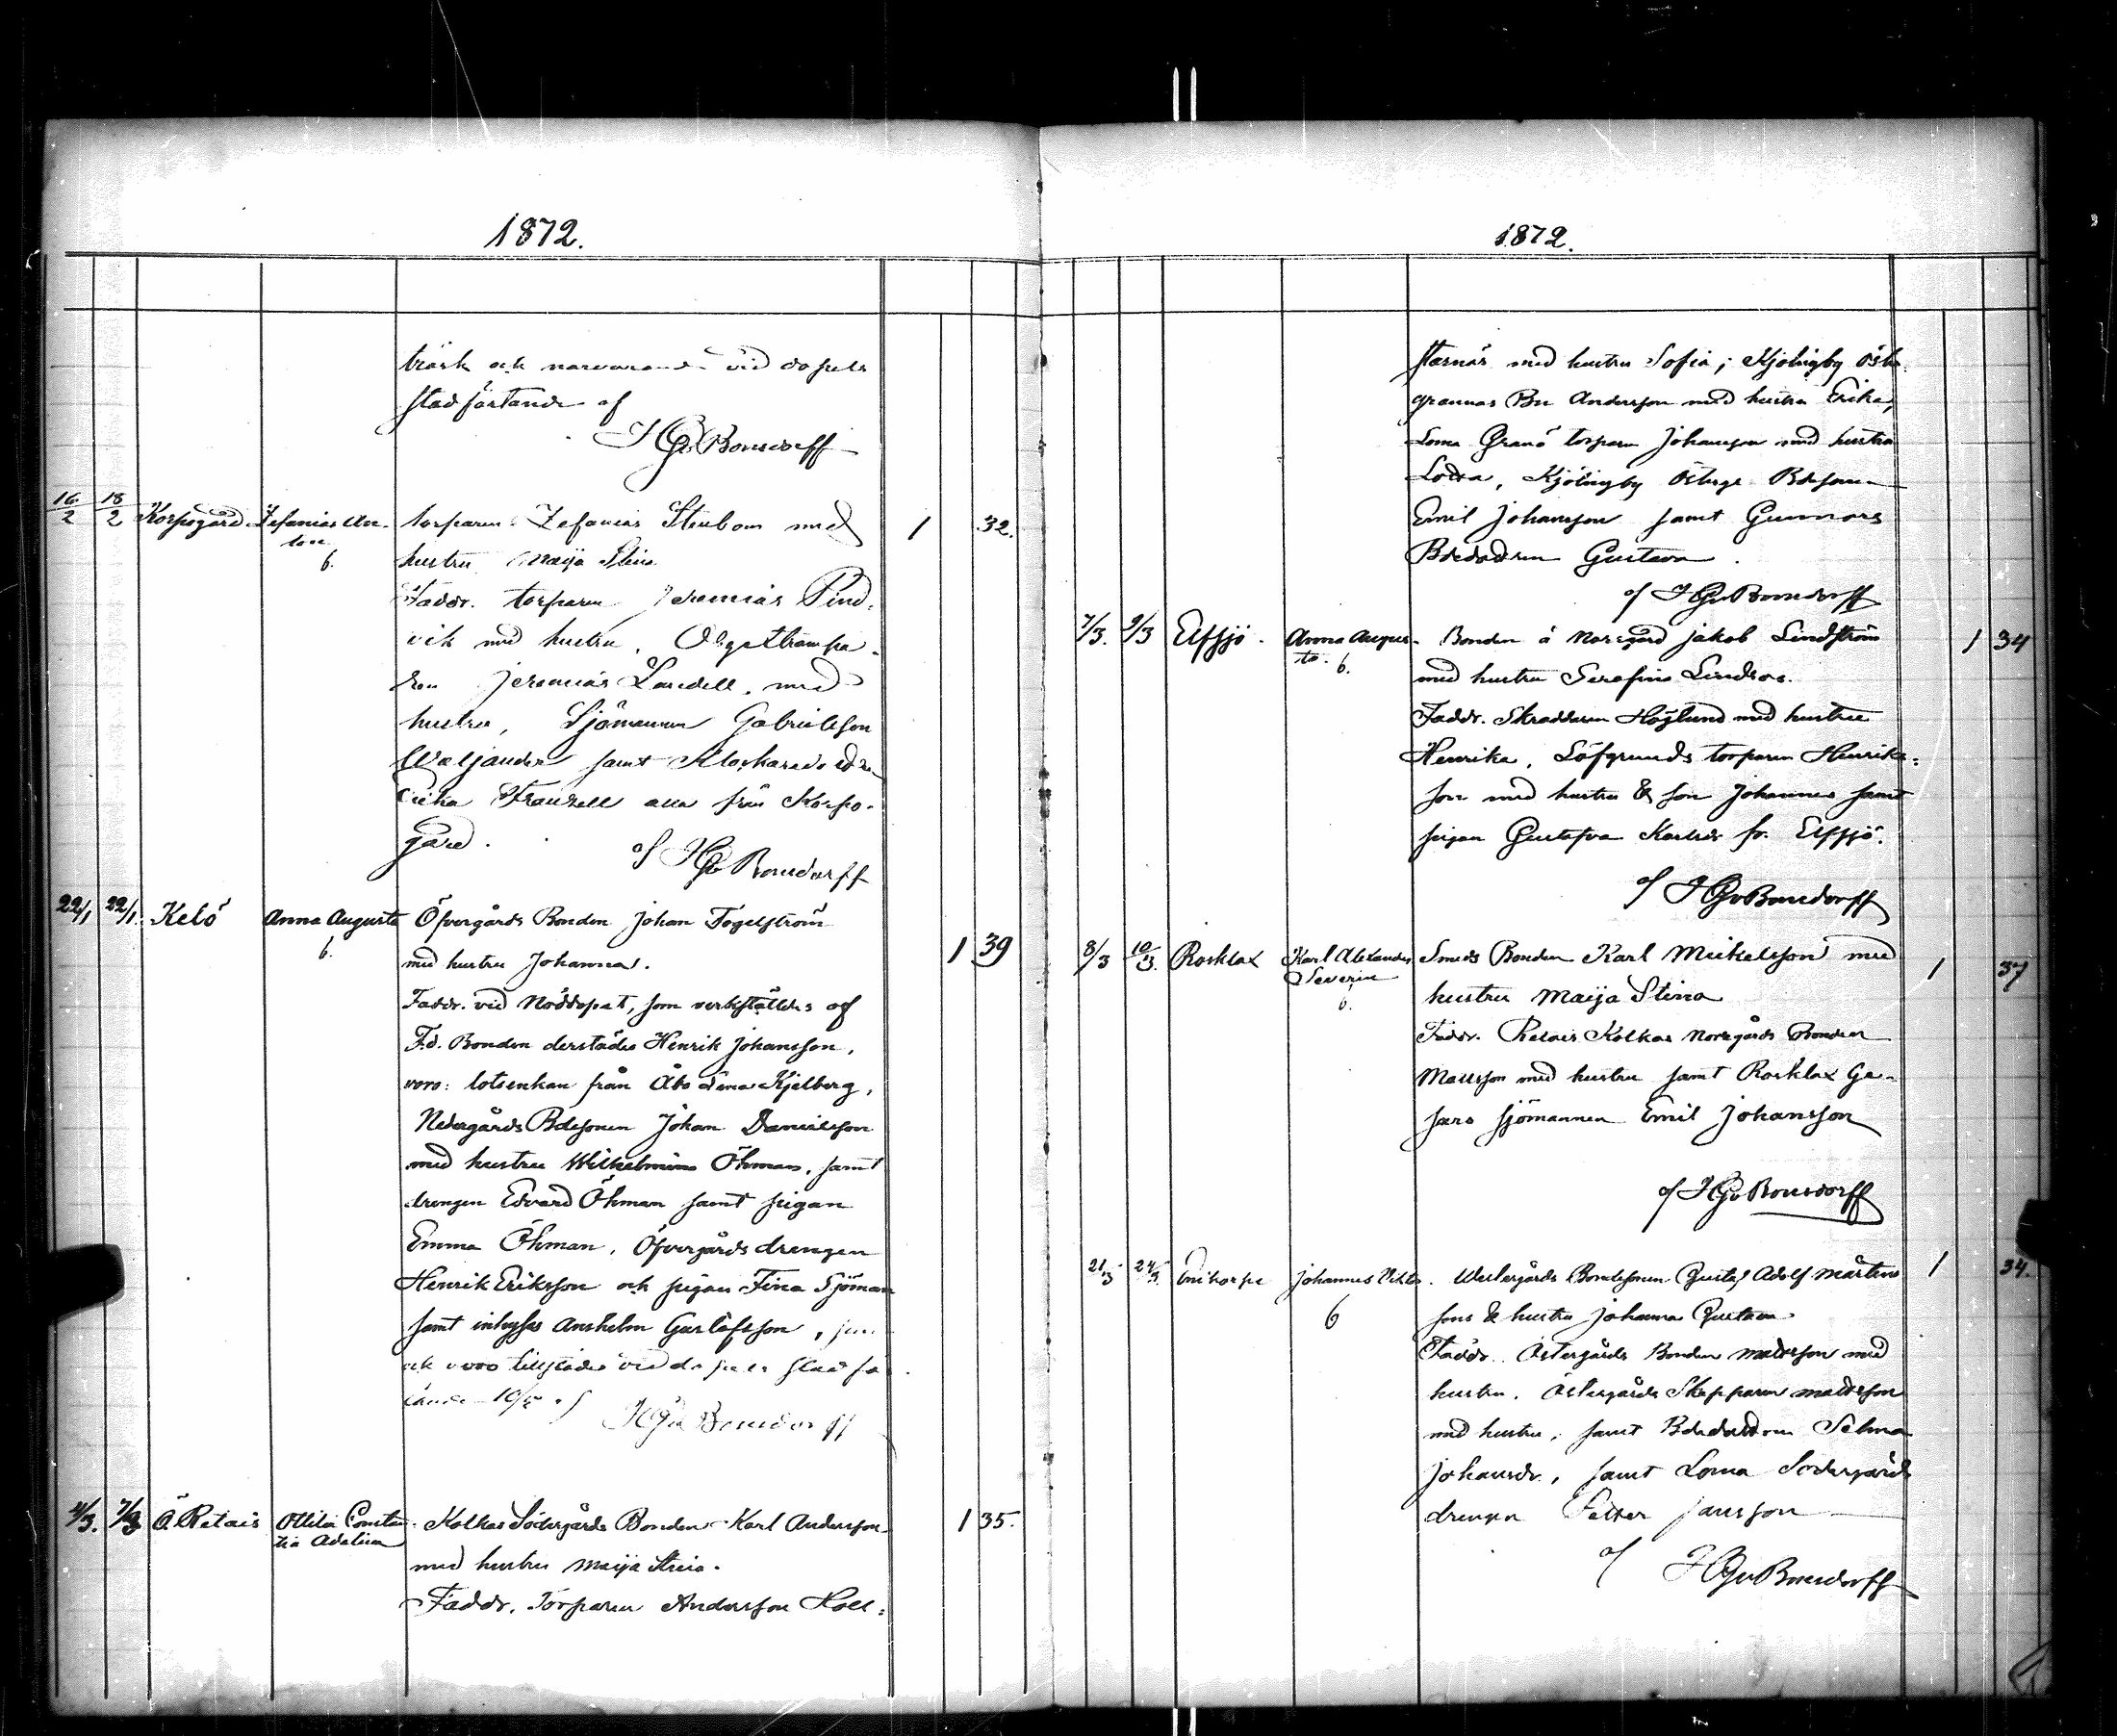 1872.
träsk och närvarande vid dopets
stadfästande af
HGvBonsdorff
16/2 18/2 Korpogård Zefanias An-
ton
b.
torparen Zefanias Stenbom med
hustru Maija Stina
1 32.
Faddr. torparen Jeremias Pind-
vik med hustru,
Jeremias Lundell, med
hustru, Sjömannen Gabrielsson
samt
Frausell alla från Korpo-
gård.
af HGvBonsdorff
22/1 22/1. Kelö Anna Augusta
b.
Öfvergårds Bonden Johan Fogelström
med hustru Johanna.
1 39
Faddr. vid Nöddopet, som verkställdes af
F.d. Bonden derstädes Henrik Johansson,
voro: lotsenkan från Åbo Lena Kjelberg,
Nedergårds Bdesonen Johan Danielsson
med hustru Wilhelmina Öhman, samt
drengen Edvard Öhman samt pigan
Emma Öhman, Öfvergårds drengen
Henrik Eriksson och pigan Fina Sjöman
samt inhyses Anshelm Gustafsson,
och voro tillstädes vid dopets stadfä
stande 10/5 af
HGvBonsdorff
4/3. 7/3 Ö. Retais Ottilia Constan
tia Adelina
Kolkas Södergårds Bonden Karl Andersson
med hustru Maija Stina.
1 35.
Faddr. Torparen Andersson Holl-
1872.
starnäs med hustru Sofia; Kjölingby Öster
grannas Bn Andersson med hustru Erika,
Loma Granö torparen Johansson med hustru
Lovisa, Kjölingby Österg. Bdesonen
Emil Johansson samt Gunnors
Bdedottren Gustava.
af HGvBonsdorff
7/3. 9/3 Elfsjö. Anna Augus-
ta. b.
Bonden å Norrgård Jakob Lindström
med hustru Serafina Lindroos.
1 34
Faddr. Skräddaren Höglund med hustru
Henrika, Löfgrunds torparen Henriks-
son med hustru & son Johannes samt
pigan Gustafva Karlsdr fr. Elfsjö.
af HGvBonsdorff
8/3 10/3. Rosklax Karl Alexander
Severin
b.
Smeds Bonden Karl Mickelsson med
hustru Maija Stina
1 37
Faddr. Retais Kolkas Norrgårds Bonden
Mattsson med hustru samt Rosklax Ge-
sars sjömannen Emil Johansson
af HGvBonsdorff
21/3 24/3 Johannes Vikto
b
Westergårds Bondesonen Gustaf Adolf Mårtens
sons & hustru Johanna Gustava
1 34.
Faddr. Östergårds Bonden Mattsson med
hustru, Östergårds Skepparen Mattsson
med hustru, samt Bdedottren Selma
Johansdr., samt Loma Södergårds
drengen Petter Jansson
af HGvBonsdorff